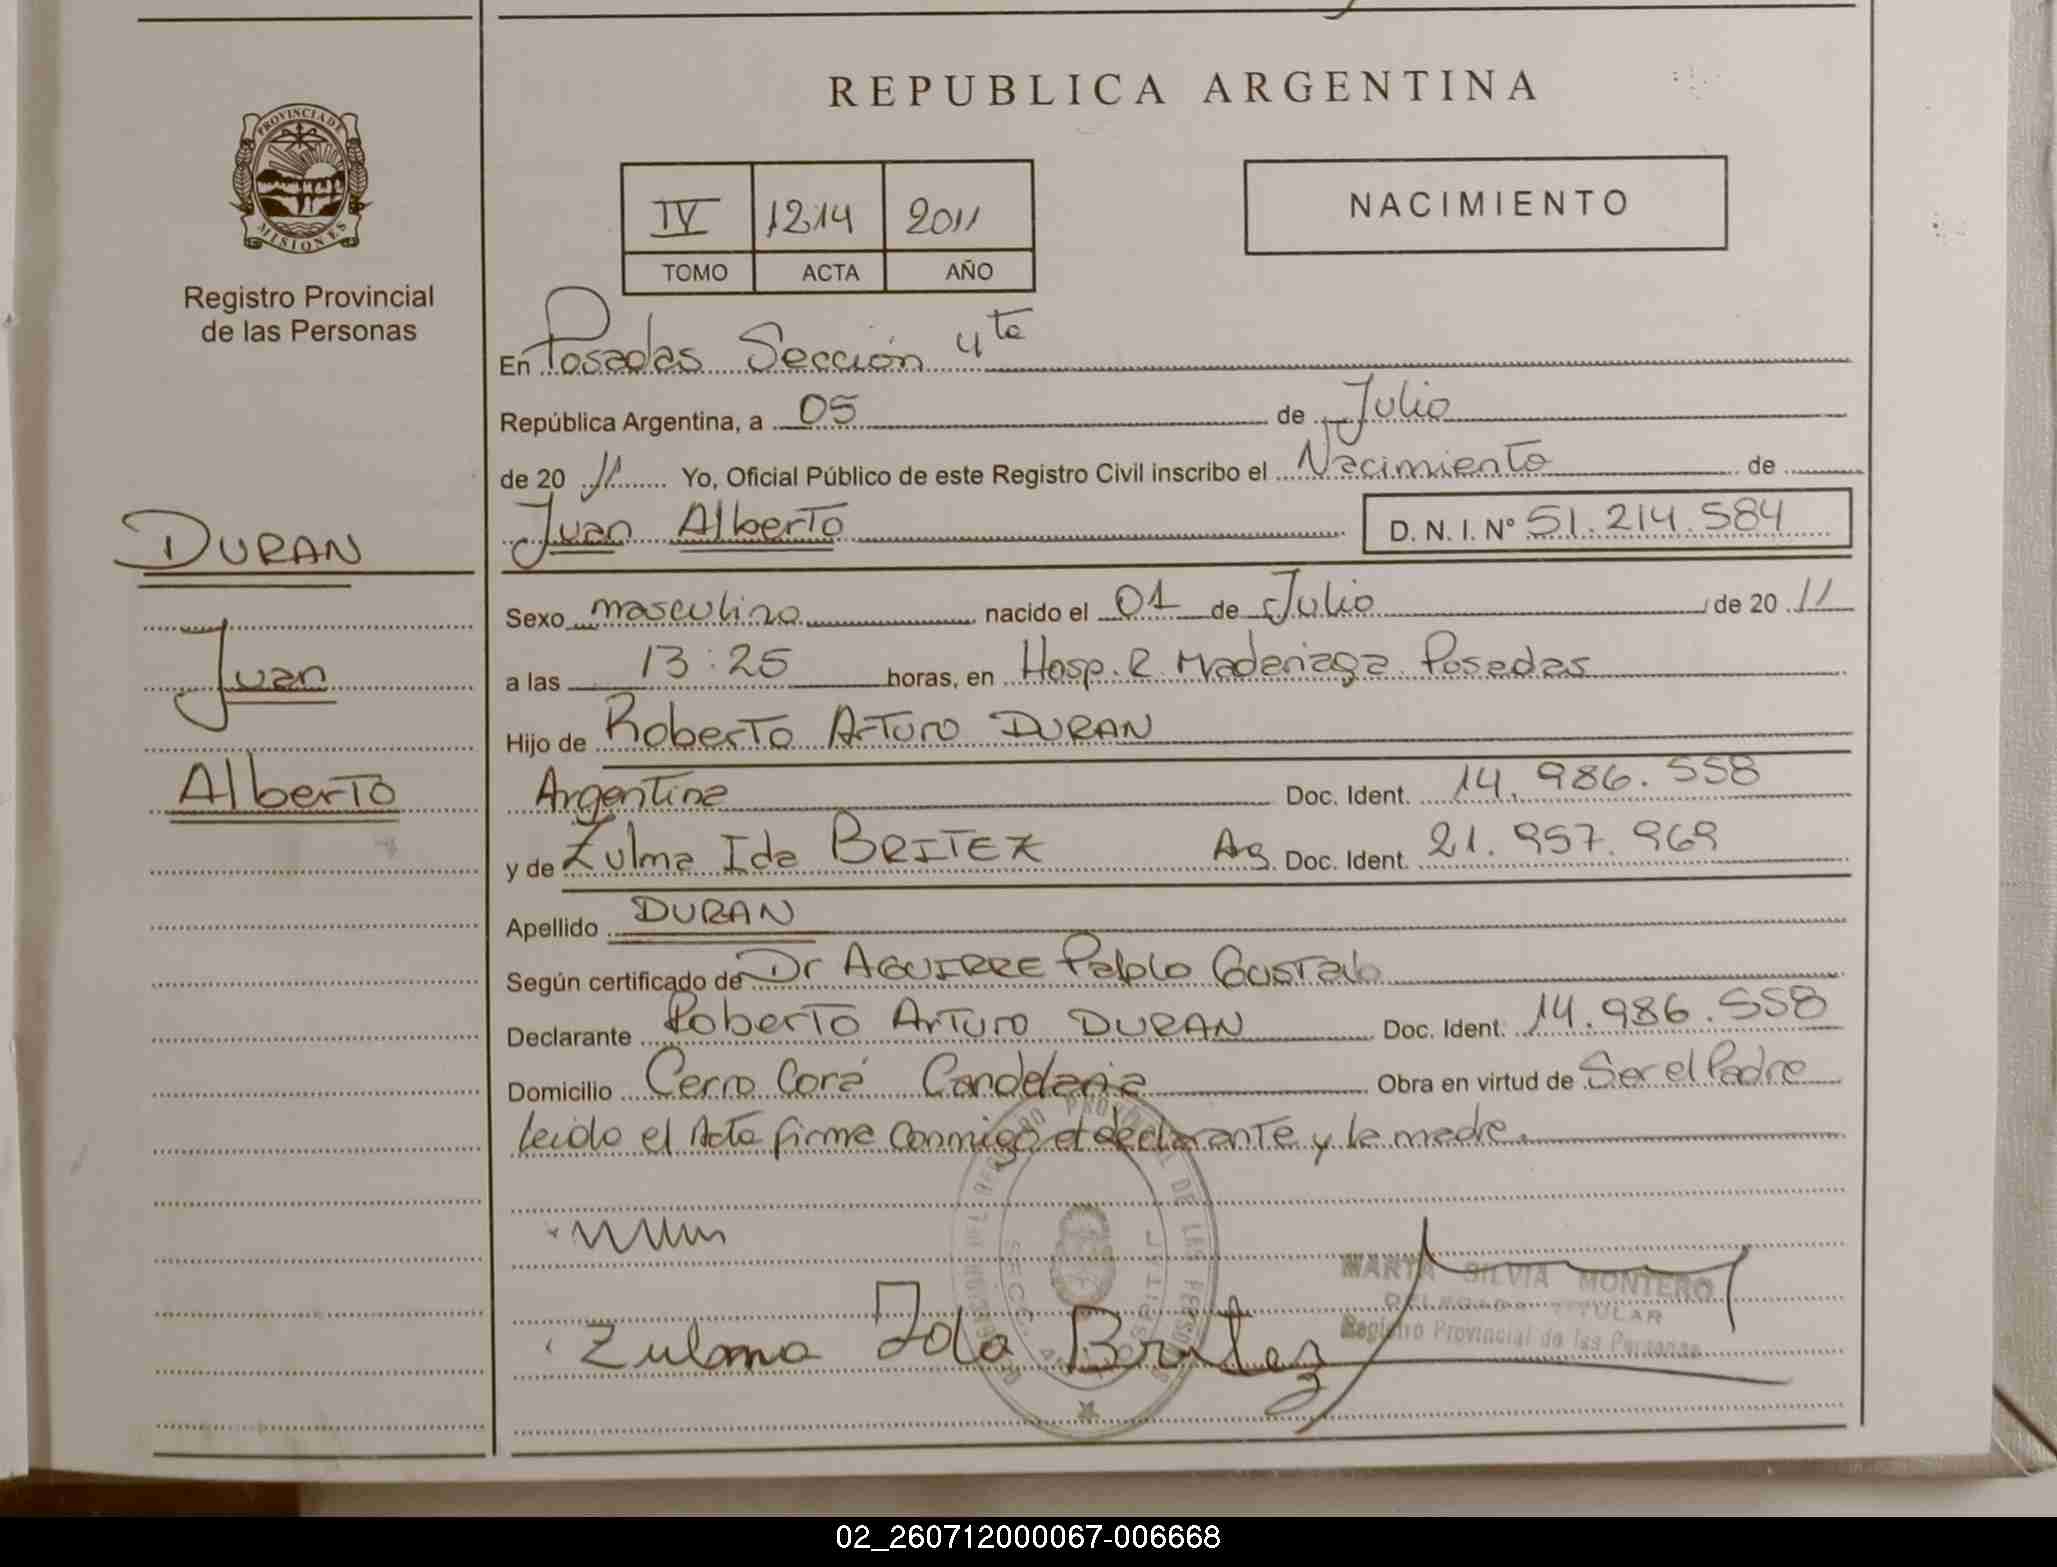 REPUBLICA ARGENTINA
PROVINCIA DE
MISIONES
Registro Provincial
de las Personas
IV 1214 2011
TOMO ACTA AÑO
NACIMIENTO
En Posadas Sección 4ta
República Argentina, a 05 de Julio
de 20 11 Yo, Oficial Público de este Registro Civil inscribo el Nacimiento de
Juan Alberto D. N. I. Nº 51.214.584
DURAN
Juan
Alberto
Sexo masculino nacido el 01 de Julio de 20 11
a las 13:25 horas, en Hosp. R Madariaga Posadas
Hijo de Roberto Arturo DURAN
Argentina Doc. Ident. 14.986.558
y de Zulma Ida BRITEZ Ag. Doc. Ident. 21.957.969
Apellido DURAN
Según certificado de Dr AGUIRRE Pablo Gustavo
Declarante Roberto Arturo DURAN Doc. Ident. 14.986.558
Domicilio Cerro Corá Candelaria Obra en virtud de Ser el Padre
leido el Acta firma conmigo el declarante y la madre.
MARTA SILVIA MONTERO
DELEGADA TITULAR
Registro Provincial de las Personas
Zulma Ida Britez
02_260712000067-006668